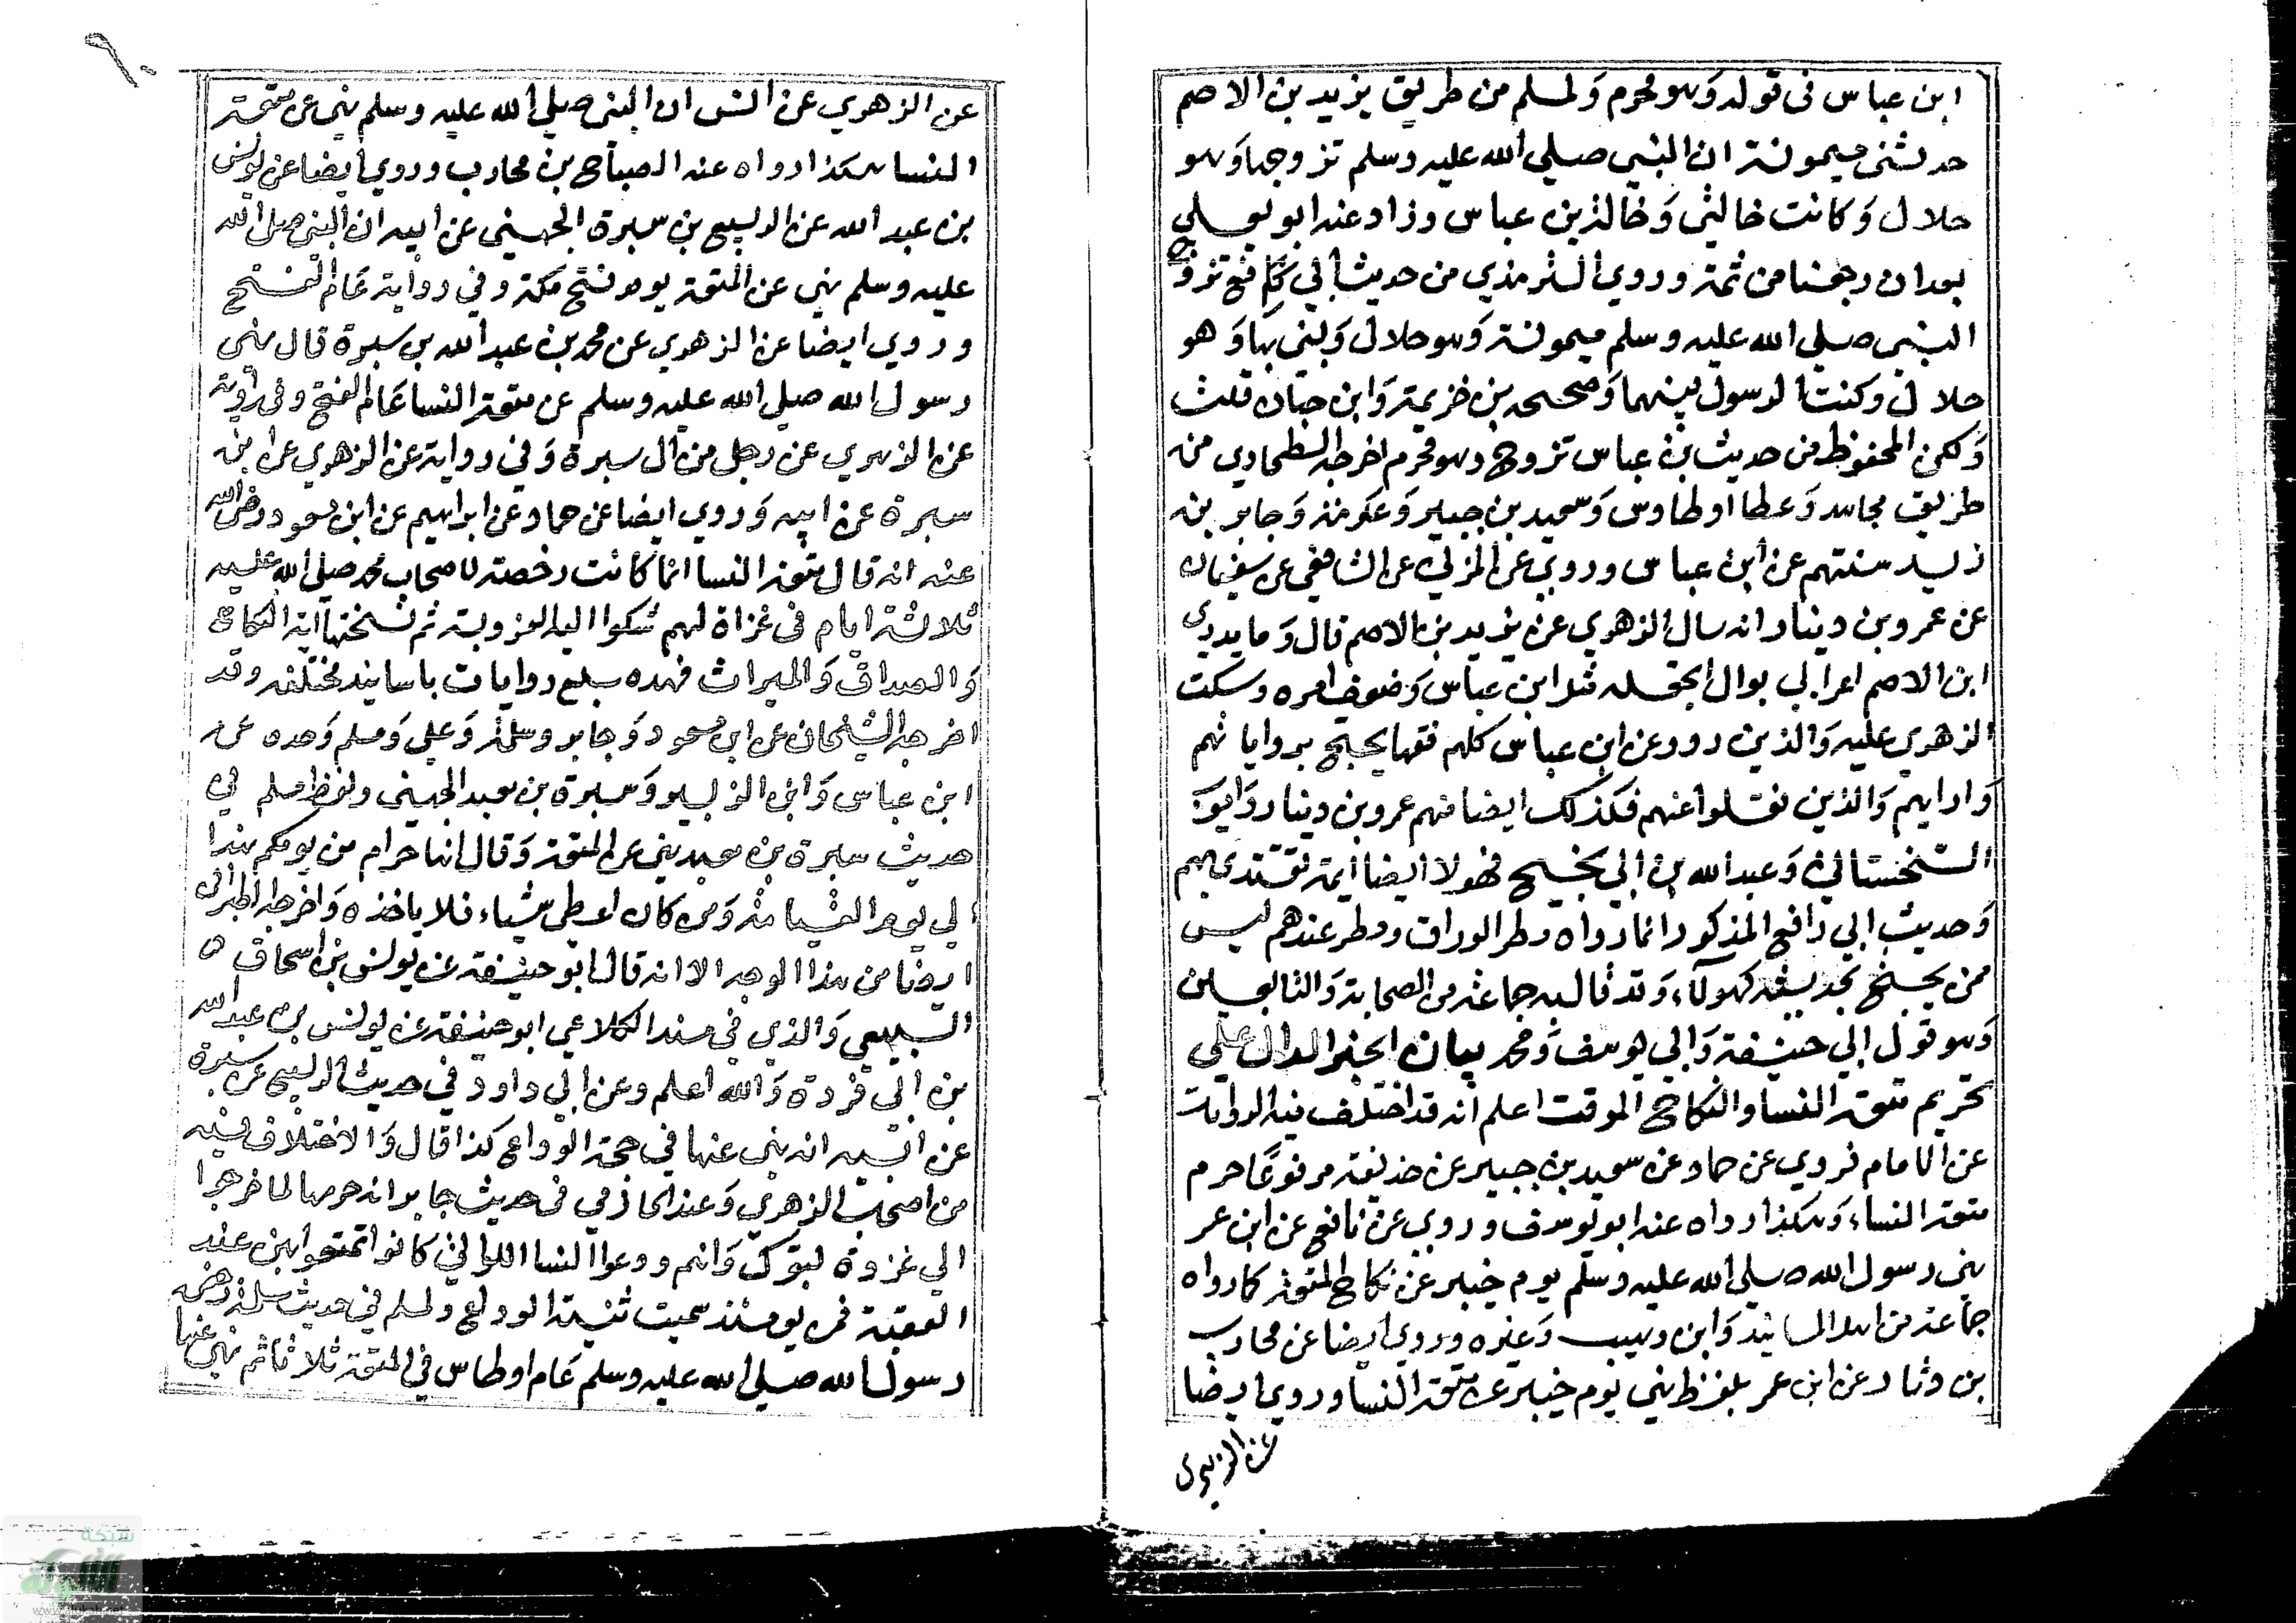 ابن عباس في قوله وهو محرم ولمسلم من طريق يزيد بن الاصم
حدثتني ميمونة ان النبي صلى الله عليه وسلم تزوجها وهو
حلال وكانت خالتي وخالة بن عباس وزاد عند ابو يعلى
بعد ان رجعنا من مكة وروى الترمذي من حديث ابي رافع تزوج
النبي صلى الله عليه وسلم ميمونة وهو حلال وبنى بها وهو
حلال وكنت الرسول بينهما وصححه بن خزيمة وابن حبان قلت
ولكن المحفوظ من حديث بن عباس تزوج وهو محرم اخرجه الطحاوي من
طريق مجاهد وعطا وطاوس وسعيد بن جبير وعكرمة وجابر بن
زيد ستتهم عن ابن عباس وروي عن المزني عن الشافعي عن سفيان
عن عمرو بن دينار انه سال الزهري عن يزيد بن الاصم قال وما يدري
ابن الاصم اعرابي بوال اتجعله مثل ابن عباس وضعف امره وسكت
الزهري عليه والذين رووا عن ابن عباس كلهم فقها يحتج برواياتهم
وارايهم والذين نقلوا عنهم فكذلك ايضا منهم عمرو بن دينار وايوب
السختياني وعبد الله بن ابي نجيح فهولا ايضا ايمة تقتدى بهم
وحديث ابي رافع المذكور انما رواه مطر الوراق ومطر عندهم ليس
ممن يحتج بحديثه كهولاء وقد قال به جماعة من الصحابة والتابعين
وهو قول ابي حنيفة وابي يوسف ومحمد بيان الخبر الدال على
تحريم متعة النسا والنكاح الموقت اعلم انه قد اختلف فيه الروايات
عن الامام فروي عن حماد عن سعيد بن جبير عن حذيفة مرفوعا حرم
متعة النساء وهكذا رواه عنه ابو يوسف وروي عن نافع عن ابن عمر
نهى رسول الله صلى الله عليه وسلم يوم خيبر عن نكاح المتعة كما رواه
جماعة من اهل المسانيد وابن وهب وغيره وروى ايضا عن محارب
بن دثار عن ابن عمر بلفظ نهى يوم خيبر عن متعة النسا وروى ايضا
عن الزهري
عن الزهري عن انس ان النبي صلى الله عليه وسلم نهى عن متعة
النسا هكذا رواه عنه الصباح بن محارب وروي ايضا عن يونس
بن عبد الله عن الربيع بن سبرة الجهني عن ابيه ان النبي صلى الله
عليه وسلم نهى عن المتعة يوم فتح مكة وفي رواية عام الفتح
وروي ايضا عن الزهري عن محمد بن عبد الله بن سبرة قال نهى
رسول الله صلى الله عليه وسلم عن متعة النسا عام الفتح وفي رواية
عن الزهري عن رجل من ال سبرة وفي رواية عن الزهري عن ابن
سبرة عن ابيه وروي ايضا عن حماد عن ابراهيم عن ابن مسعود رضي الله
عنه انه قال متعة النسا انما كانت رخصة لاصحاب محمد صلى الله عليه
ثلاثة ايام في غزاة لهم شكوا اليه العزوبة ثم نسختها اية النكاح
والصداق والميراث فهذه سبع روايات باسانيد مختلفة وقد
اخرجه الشيخان عن ابن مسعود وجابر وسلمة وعلي ومسلم وحده عن
ابن عباس وابن الزبير وسبرة بن معبد الجهني ولفظ مسلم في
حديث سبرة بن معبد نهى عن المتعة وقال انها حرام من يومكم هذا
الى يوم القيامة ومن كان اعطى شياء فلا ياخذه واخرجه الطبراني
ايضا من هذا الوجه الا انه قال ابو حنيفة عن يونس بن اسحاق
السبيعي والذي في مسند الكلاعي ابو حنيفة عن يونس بن عبد الله
بن ابي فروة والله اعلم وعن ابي داود في حديث الربيع عن سبرة
عن ابيه انه نهى عنها في حجة الوداع كذا قال والاختلاف فيه
من اصحاب الزهري وعند الحازمي في حديث جابر انه حرمها لما خرجوا
الى غزوة تبوك وانهم ودعوا النسا اللواتي كانوا تمتعوا بهن عند
العقبة فمن يومئذ سميت ثنية الوداع ولمسلم في حديث سلمة رخص
رسول الله صلى الله عليه وسلم عام اوطاس في المتعة ثلاثا ثم نهى عنها
شبكة
الألوكة
www.alukah.net